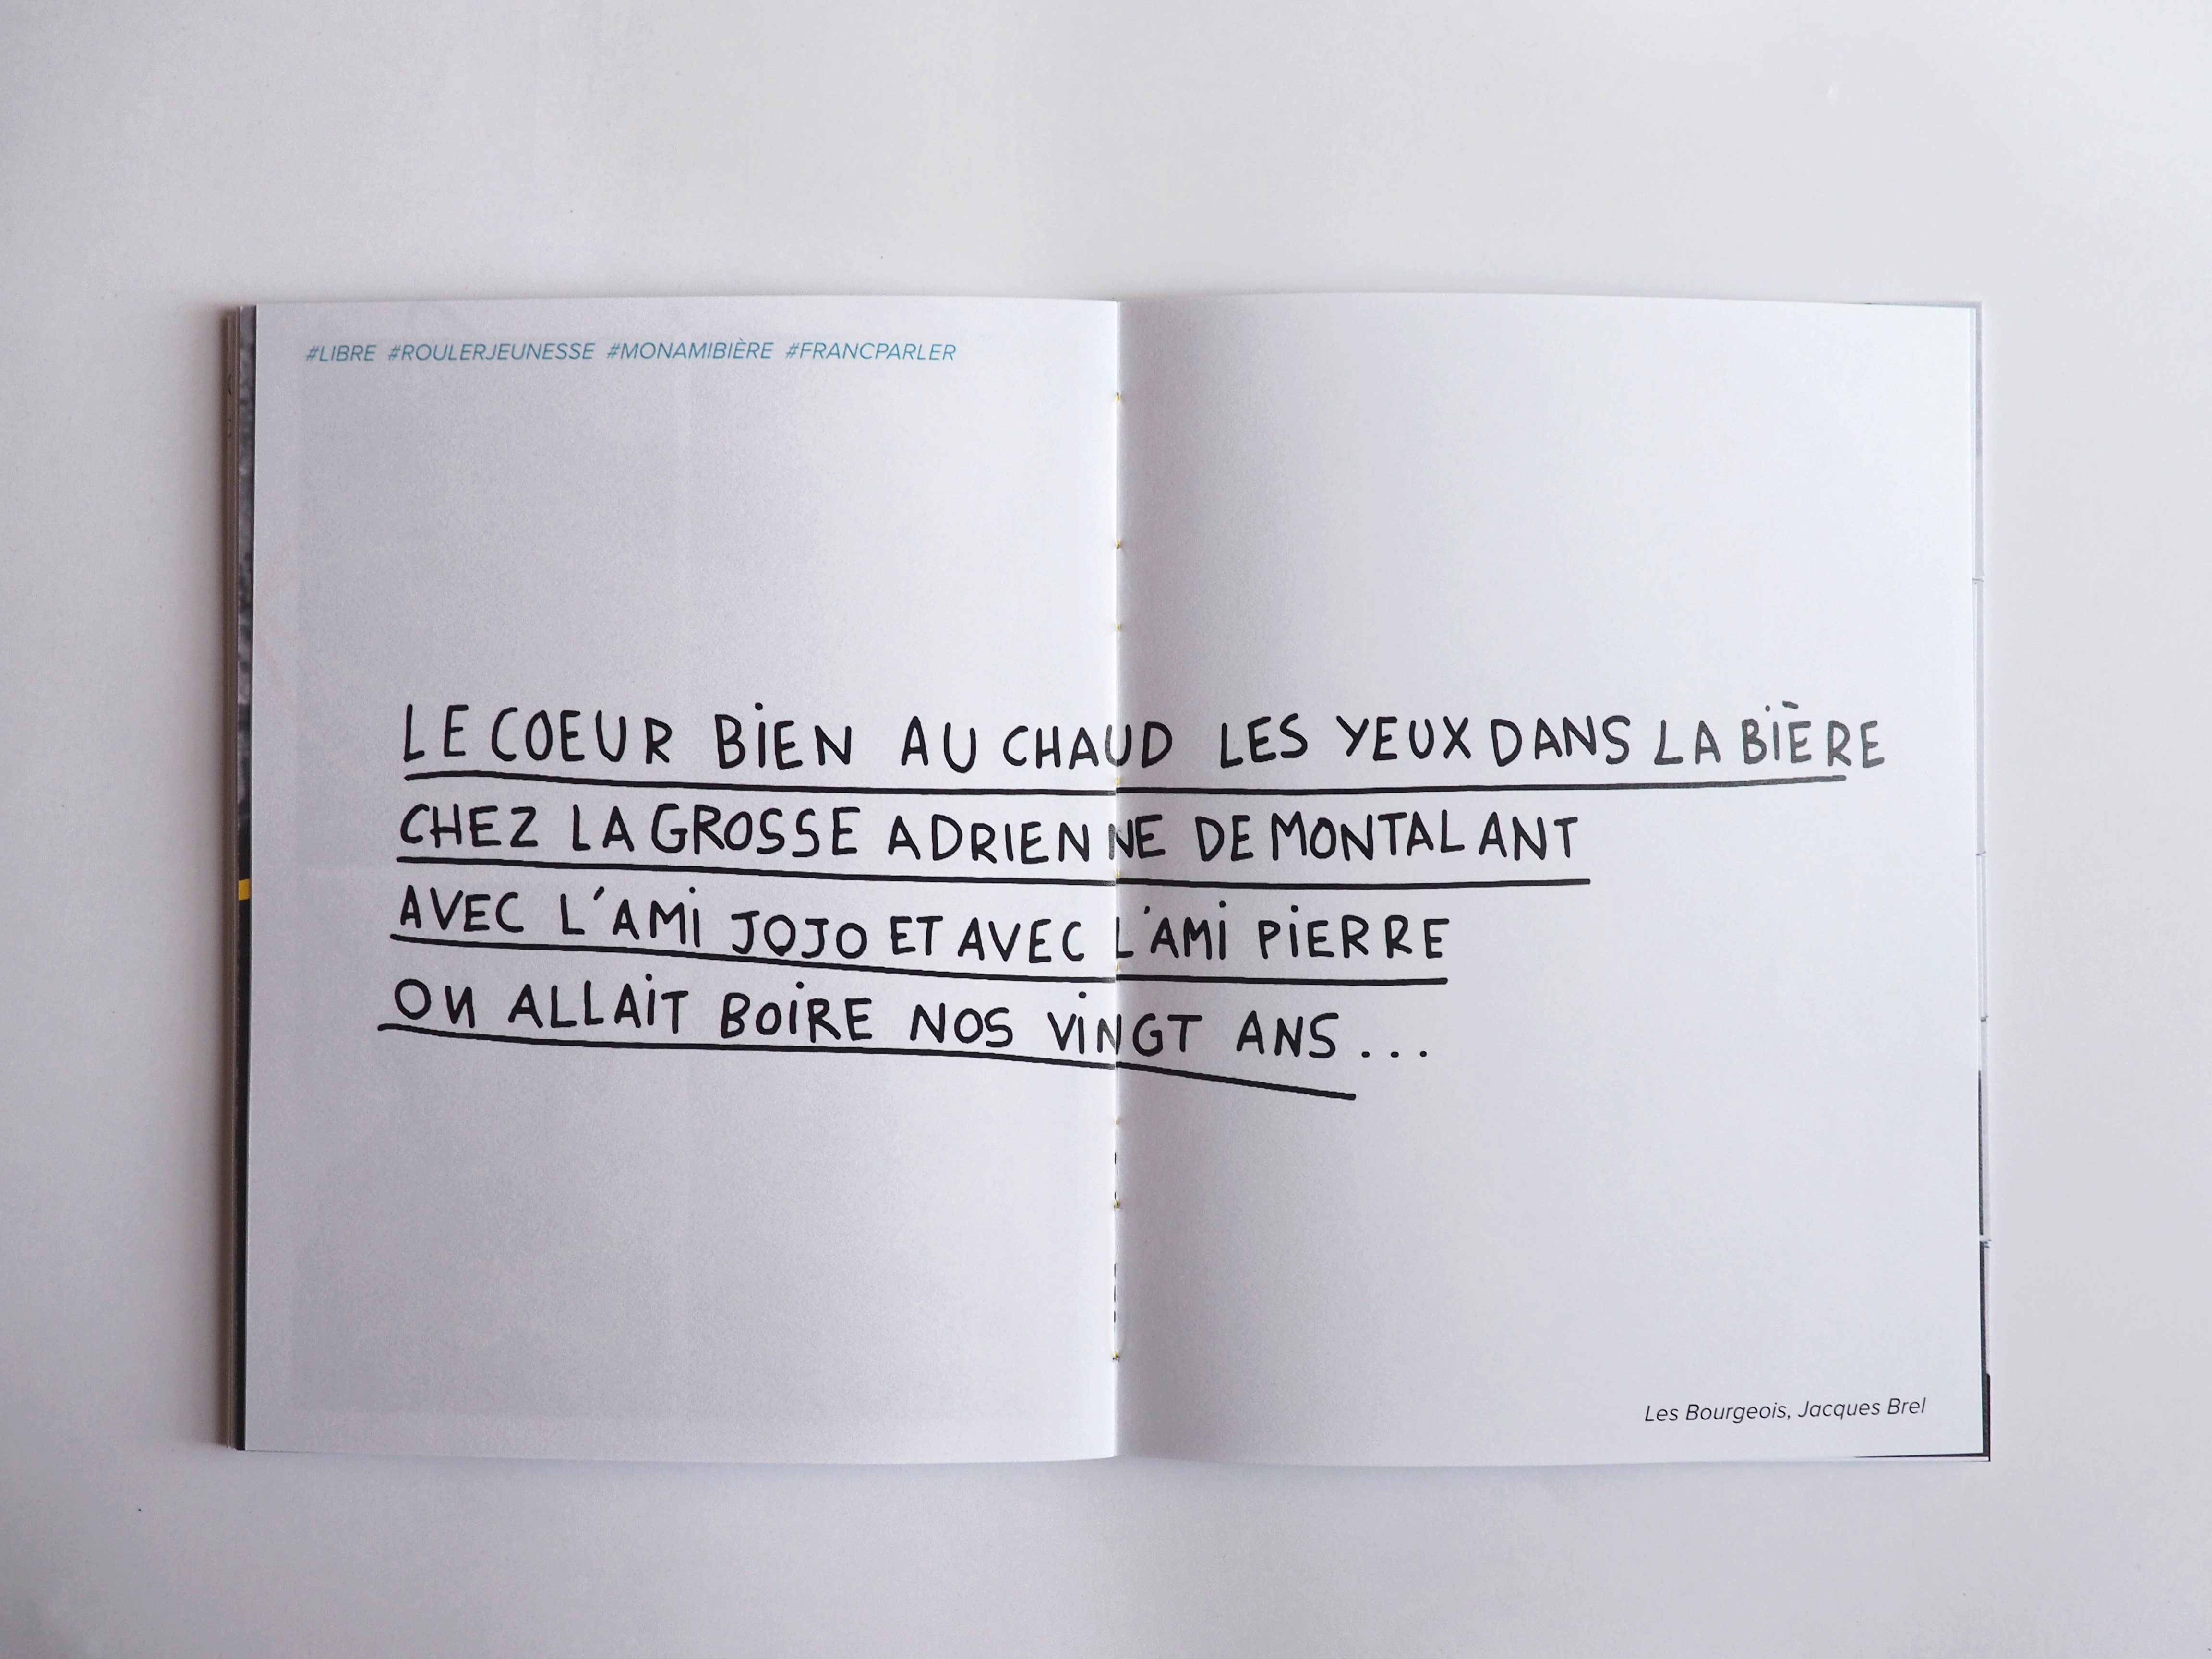 #LIBRE #ROULERJEUNESSE #MONAMIBIÈRE #FRANCPARLER
LE COEUR BiEN AU CHAUD LES YEUX DANS LA BiÈRE
CHEZ LA GROSSE ADRIENNE DE MONTALANT
AVEC L'AMi JOJO ET AVEC L'AMi PiERRE
ON ALLAiT BOiRE NOS ViNGT ANS...
Les Bourgeois, Jacques Brel